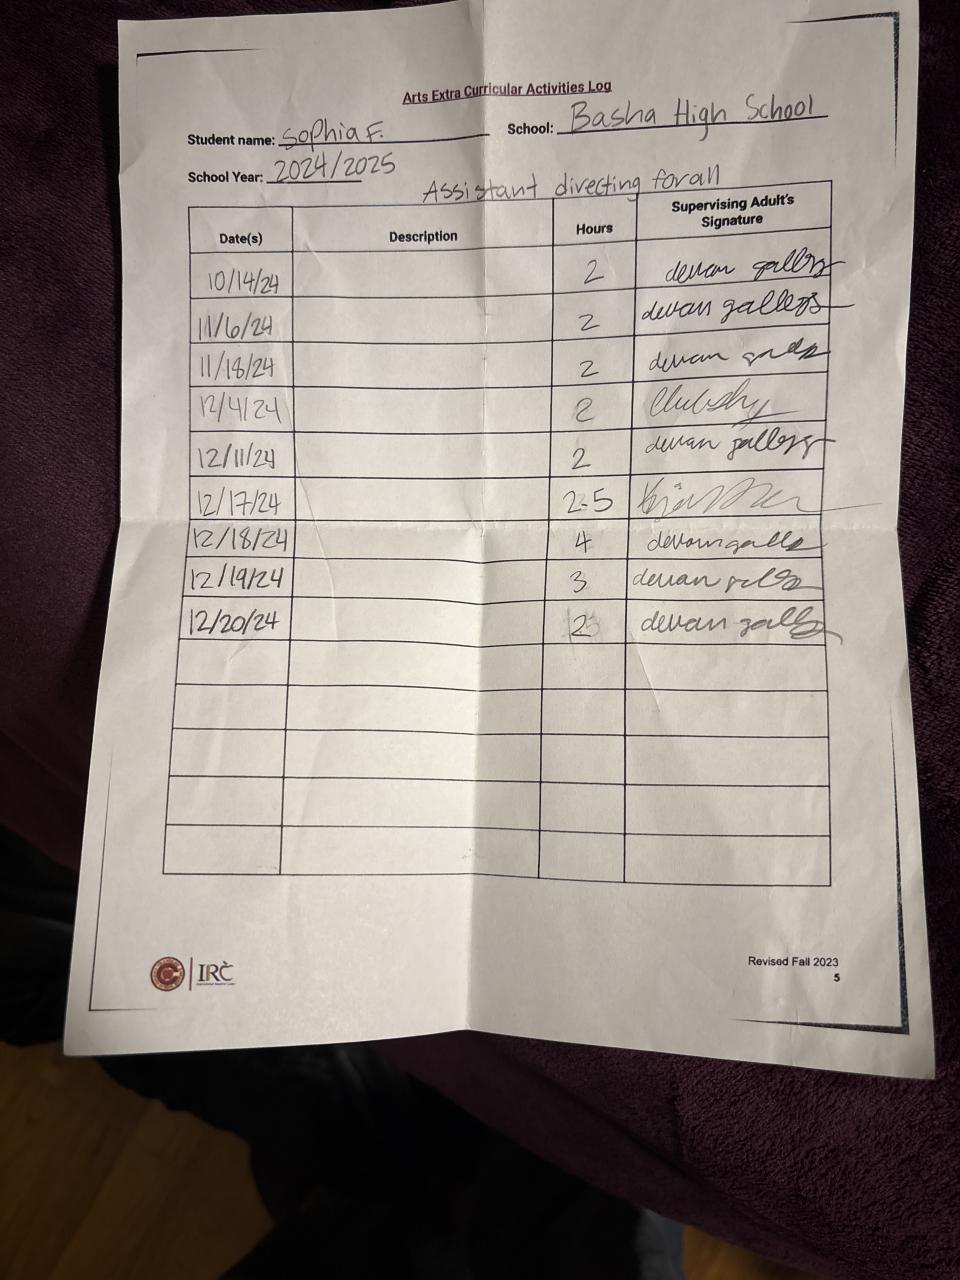 Arts Extra Curricular Activities Log
Student name: Sophia F. School: Basha High School
School Year: 2024/2025
Assistant directing for all
Date(s) Description Hours Supervising Adult's Signature
10/14/24 2 devan
11/6/24 2 devan gallegos
11/18/24 2 devan
12/4/24 2
12/11/24 2 devan
12/17/24 2.5
12/18/24 4 devan
12/19/24 3 devan
12/20/24 2 devan
IRC
Revised Fall 2023
5